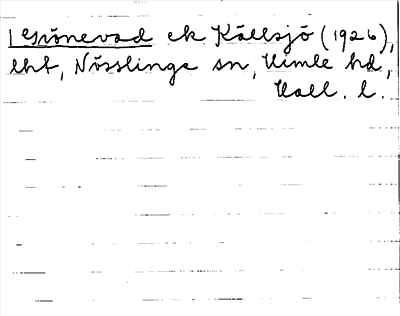 Grönevad ek Källsjö (1926),
lht, Nösslinge sn, Himle hd,
Hall. l.